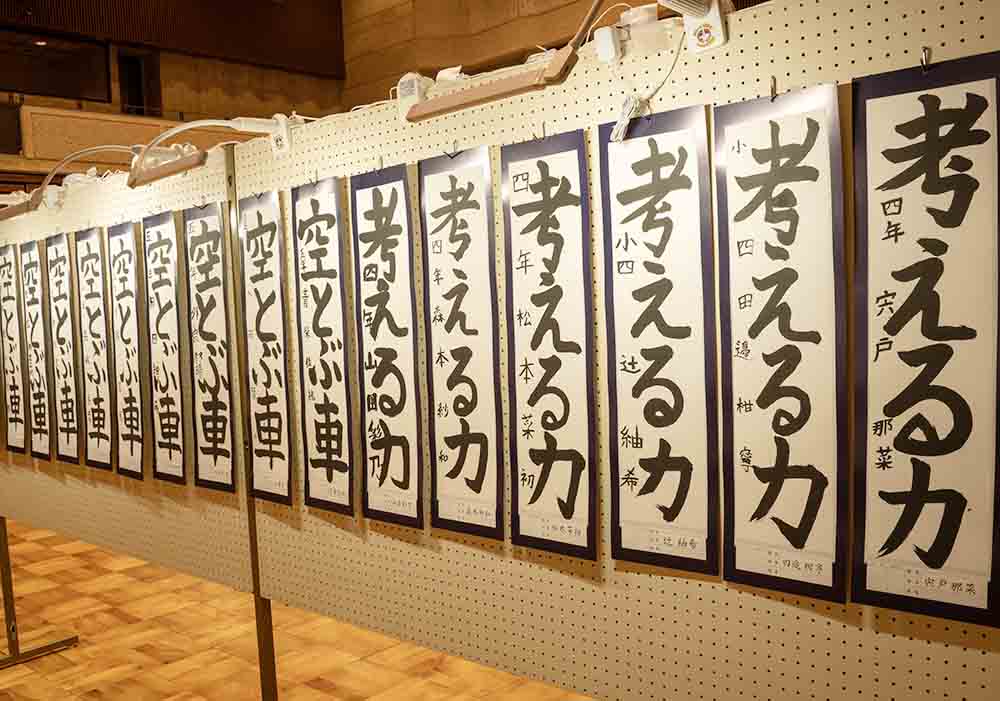 考える力
四年 宍戸那菜
宍戸那菜
考える力
小四 田邉柑寧
考える力
小四 辻紬希
辻 紬希
考える力
四年 松本菜初
松本菜初
考える力
四年 森本紗和
森本紗和
考える力
四年 山田
空とぶ車
空とぶ車
空とぶ車
空とぶ車
空とぶ車
空とぶ車
空とぶ車
空とぶ車
空とぶ車